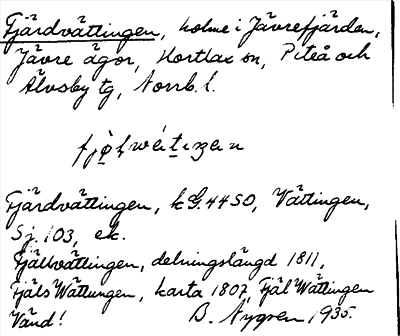 Fjärdvättingen, holme i Jävrefjärden,
Jävre ägor, Hortlax sn, Piteå och
Älvsby tg, Norrb. l.
Fjärdvättingen, k G. 4450, Vättingen,
Sj. 103, ek.
Fjällvättingen, delningslängd 1811,
Fjäls Wättungen, karta 1807, Fjäl Wättingen
Vänd! B. Nygren 1935.